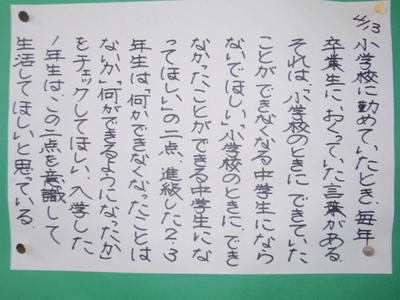 4/13 小学校に勤めていたとき、毎年
卒業生に、おくっていた言葉がある。
それは、「小学校のときにできていた
ことができなくなる中学生になら
ないでほしい」「小学校のときに、でき
なかったことができる中学生にな
ってほしい」の二点、進級した2・3
年生は「何かできなくなったことは
ないか」「何ができるようになったか」
をチェックしてほしい、入学した
1年生は、この二点を意識して
生活してほしいと思っている。